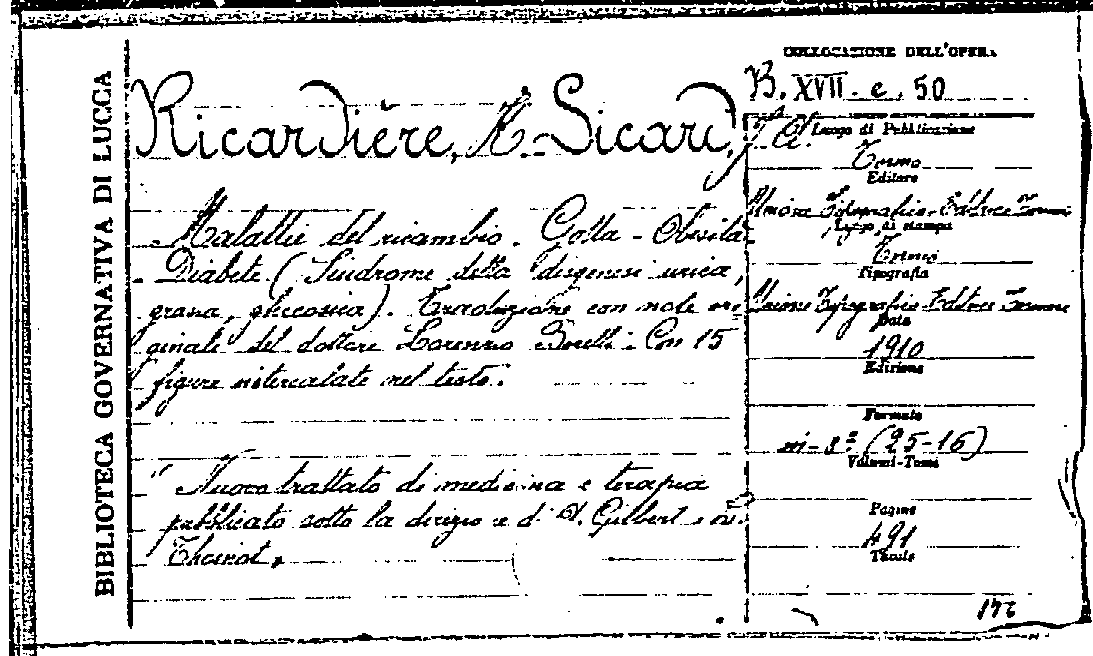 BIBLIOTECA GOVERNATIVA DI LUCCA
Ricardière, H. Sicard, J. A.
Malattie del ricambio. Gotta - Obesità
Diabete (Sindrome della disgenesi urica,
grassa, glicosica). Traduzione con note ori
ginale del dottore Lorenzo Borelli. Con 15
figure intercalate nel testo.
" Nuovo trattato di medicina e terapia
pubblicato sotto la direzione di A. Gilbert e
Thoinot "
COLLOCAZIONE DELL'OPERA
B. XVII. e. 50
Luogo di Pubblicazione
Torino
Editore
Unione Tipografico-Editrice Torinese
Luogo di stampa
Torino
Tipografia
Unione Tipografico-Editrice Torinese
Data
1910
Edizione
Formato
in-8º (25-16)
Volumi-Tomi
Pagine
491
Tavole